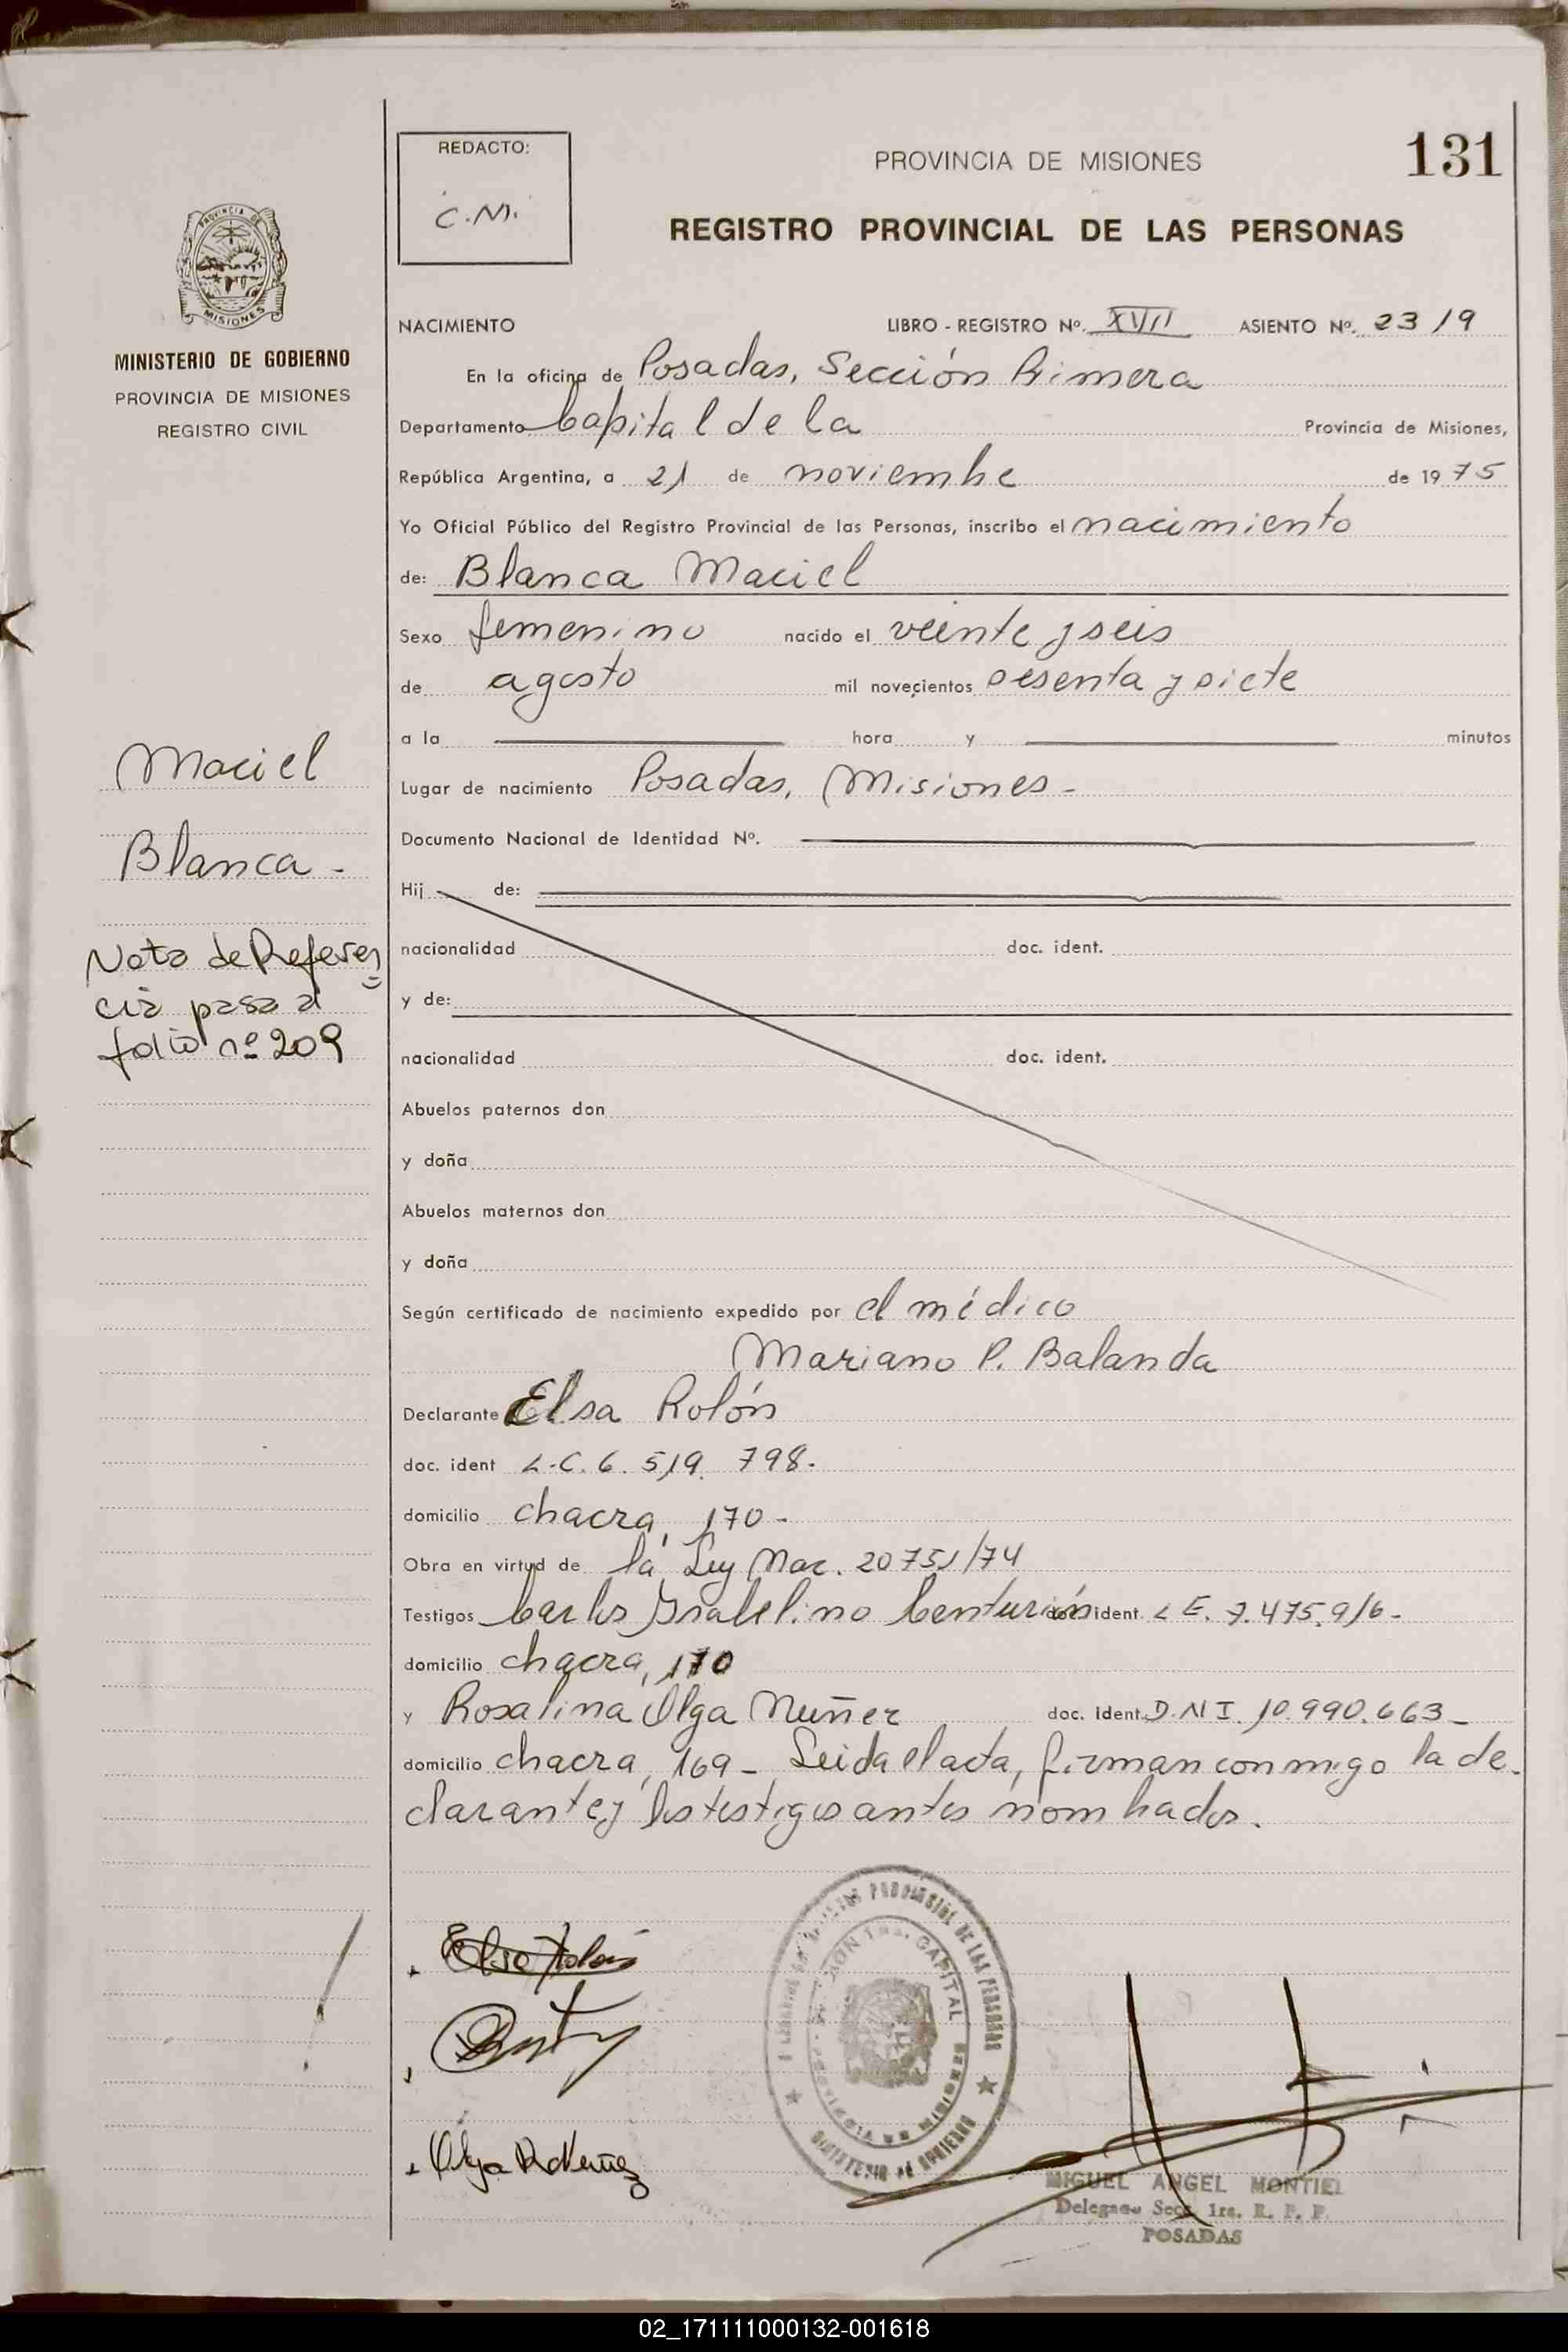 131
REDACTO:
C.M.
PROVINCIA DE MISIONES
REGISTRO PROVINCIAL DE LAS PERSONAS
PROVINCIA DE
MISIONES
MINISTERIO DE GOBIERNO
PROVINCIA DE MISIONES
REGISTRO CIVIL
NACIMIENTO LIBRO - REGISTRO Nº. XVII ASIENTO Nº. 2319
En la oficina de Posadas, Sección Primera
Departamento Capital de la Provincia de Misiones,
República Argentina, a 21 de noviembre de 1975
Yo Oficial Público del Registro Provincial de las Personas, inscribo el nacimiento
de: Blanca Maciel
Sexo femenino nacido el veinte y seis
de agosto mil novecientos sesenta y siete
a la hora y minutos
Lugar de nacimiento Posadas, Misiones -
Documento Nacional de Identidad Nº.
Hij de:
nacionalidad doc. ident.
y de:
nacionalidad doc. ident.
Abuelos paternos don
y doña
Abuelos maternos don
y doña
Maciel
Blanca -
Nota de Referen
cia pasa al
folio nº 209
Según certificado de nacimiento expedido por el médico
Mariano P. Balanda
Declarante Elsa Rolón
doc. ident L.C. 6.519.798.
domicilio chacra, 170 -
Obra en virtud de la Ley Nac. 20751/74
Testigos Carlos Ysabelino Centurión doc. ident. L E. 7.475.916 -
domicilio chacra, 170
y Rosalina Olga Nuñez doc. ident. D.N I. 10.990.663 -
domicilio chacra, 169 - Leida el acta, firman conmigo la de-
clarante y los testigos antes nombrados.
Elsa Rolón
Olga R Nuñez
PROVINCIAL DE LAS PERSONAS
CAPITAL
MINISTERIO DE GOBIERNO
MIGUEL ANGEL MONTIEL
Delegado Secc. 1ra. R. P. P.
POSADAS
02_171111000132-001618